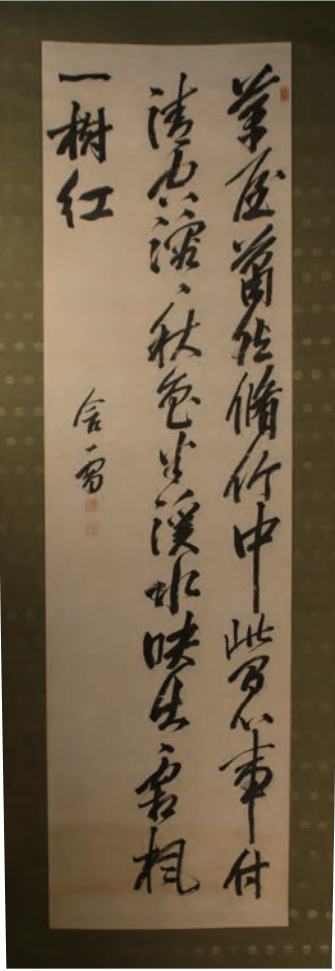 茅屋蕭然脩竹中此間心事付
清空溶々秋色半溪水映出霜楓
一樹紅
含雪